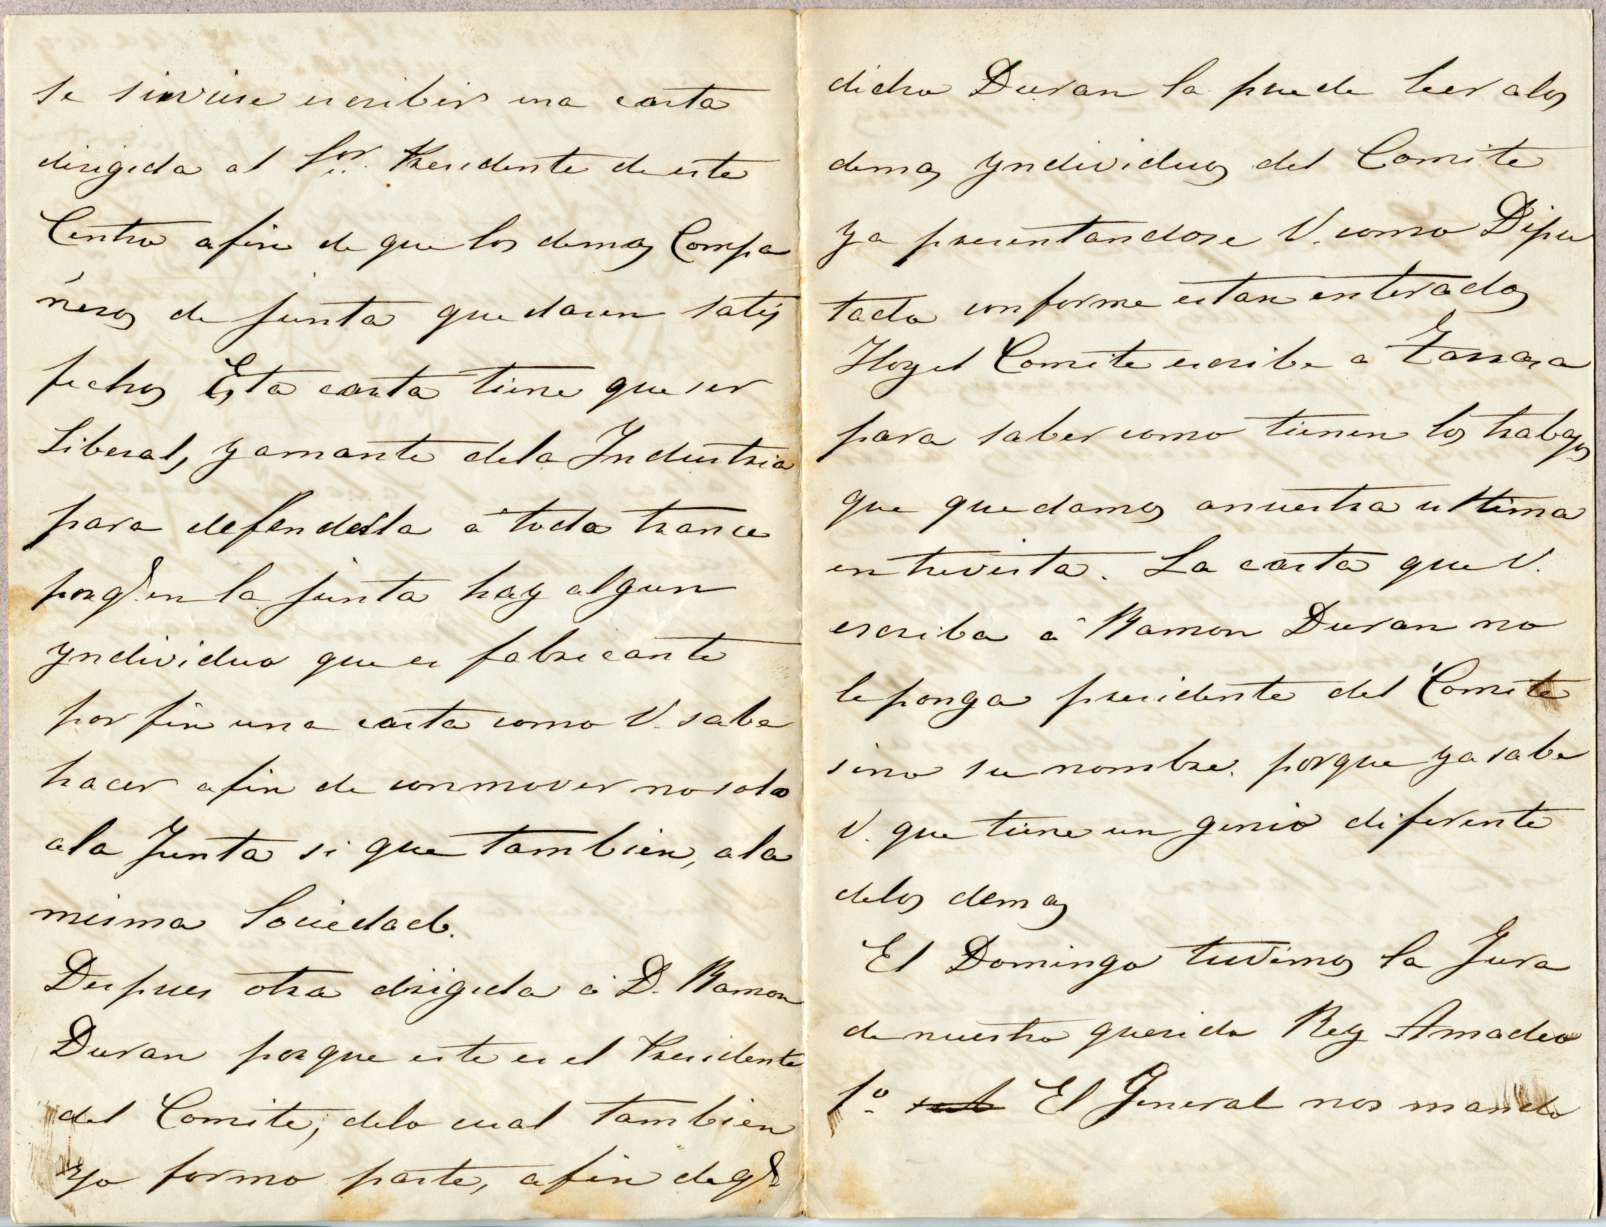 se sirviese escribir una carta
dirigida al Sor. Presidente de este
Centro afin de que los demas Compa
ñeros de junta quedasen satis
fechos Esta carta tiene que ser
Liberal, y amante dela Industria
para defenderla á toda trance
porqe. en la junta hay algun
yndividuo que es fabricante
por fin una carta como V. sabe
hacer afin de conmover no solo
ala Junta si que tambien, ala
misma Sociedad.
Despues otra dirigida á D. Ramon
Duran porque este es el Presidente
del Comite, delo cual tambien
yo formo parte, afin de qe.
dicho Duran la puede leer alos
demas yndividuos del Comite
ya presentandose V. como Dipu
tado conforme estan enterados
Hoy el Comite escribe a Tarrasa
para saber como tienen los trabajos
que quedamos anuestra ultima
entrevista. La carta que V.
escriba á Ramon Duran no
le ponga presidente del Comite
sino su nombre. porque ya sabe
V. que tiene un genio diferente
delos demas
El Domingo tuvimos la Jura
de nuestro querido Rey Amadeo
1º. El General nos mando